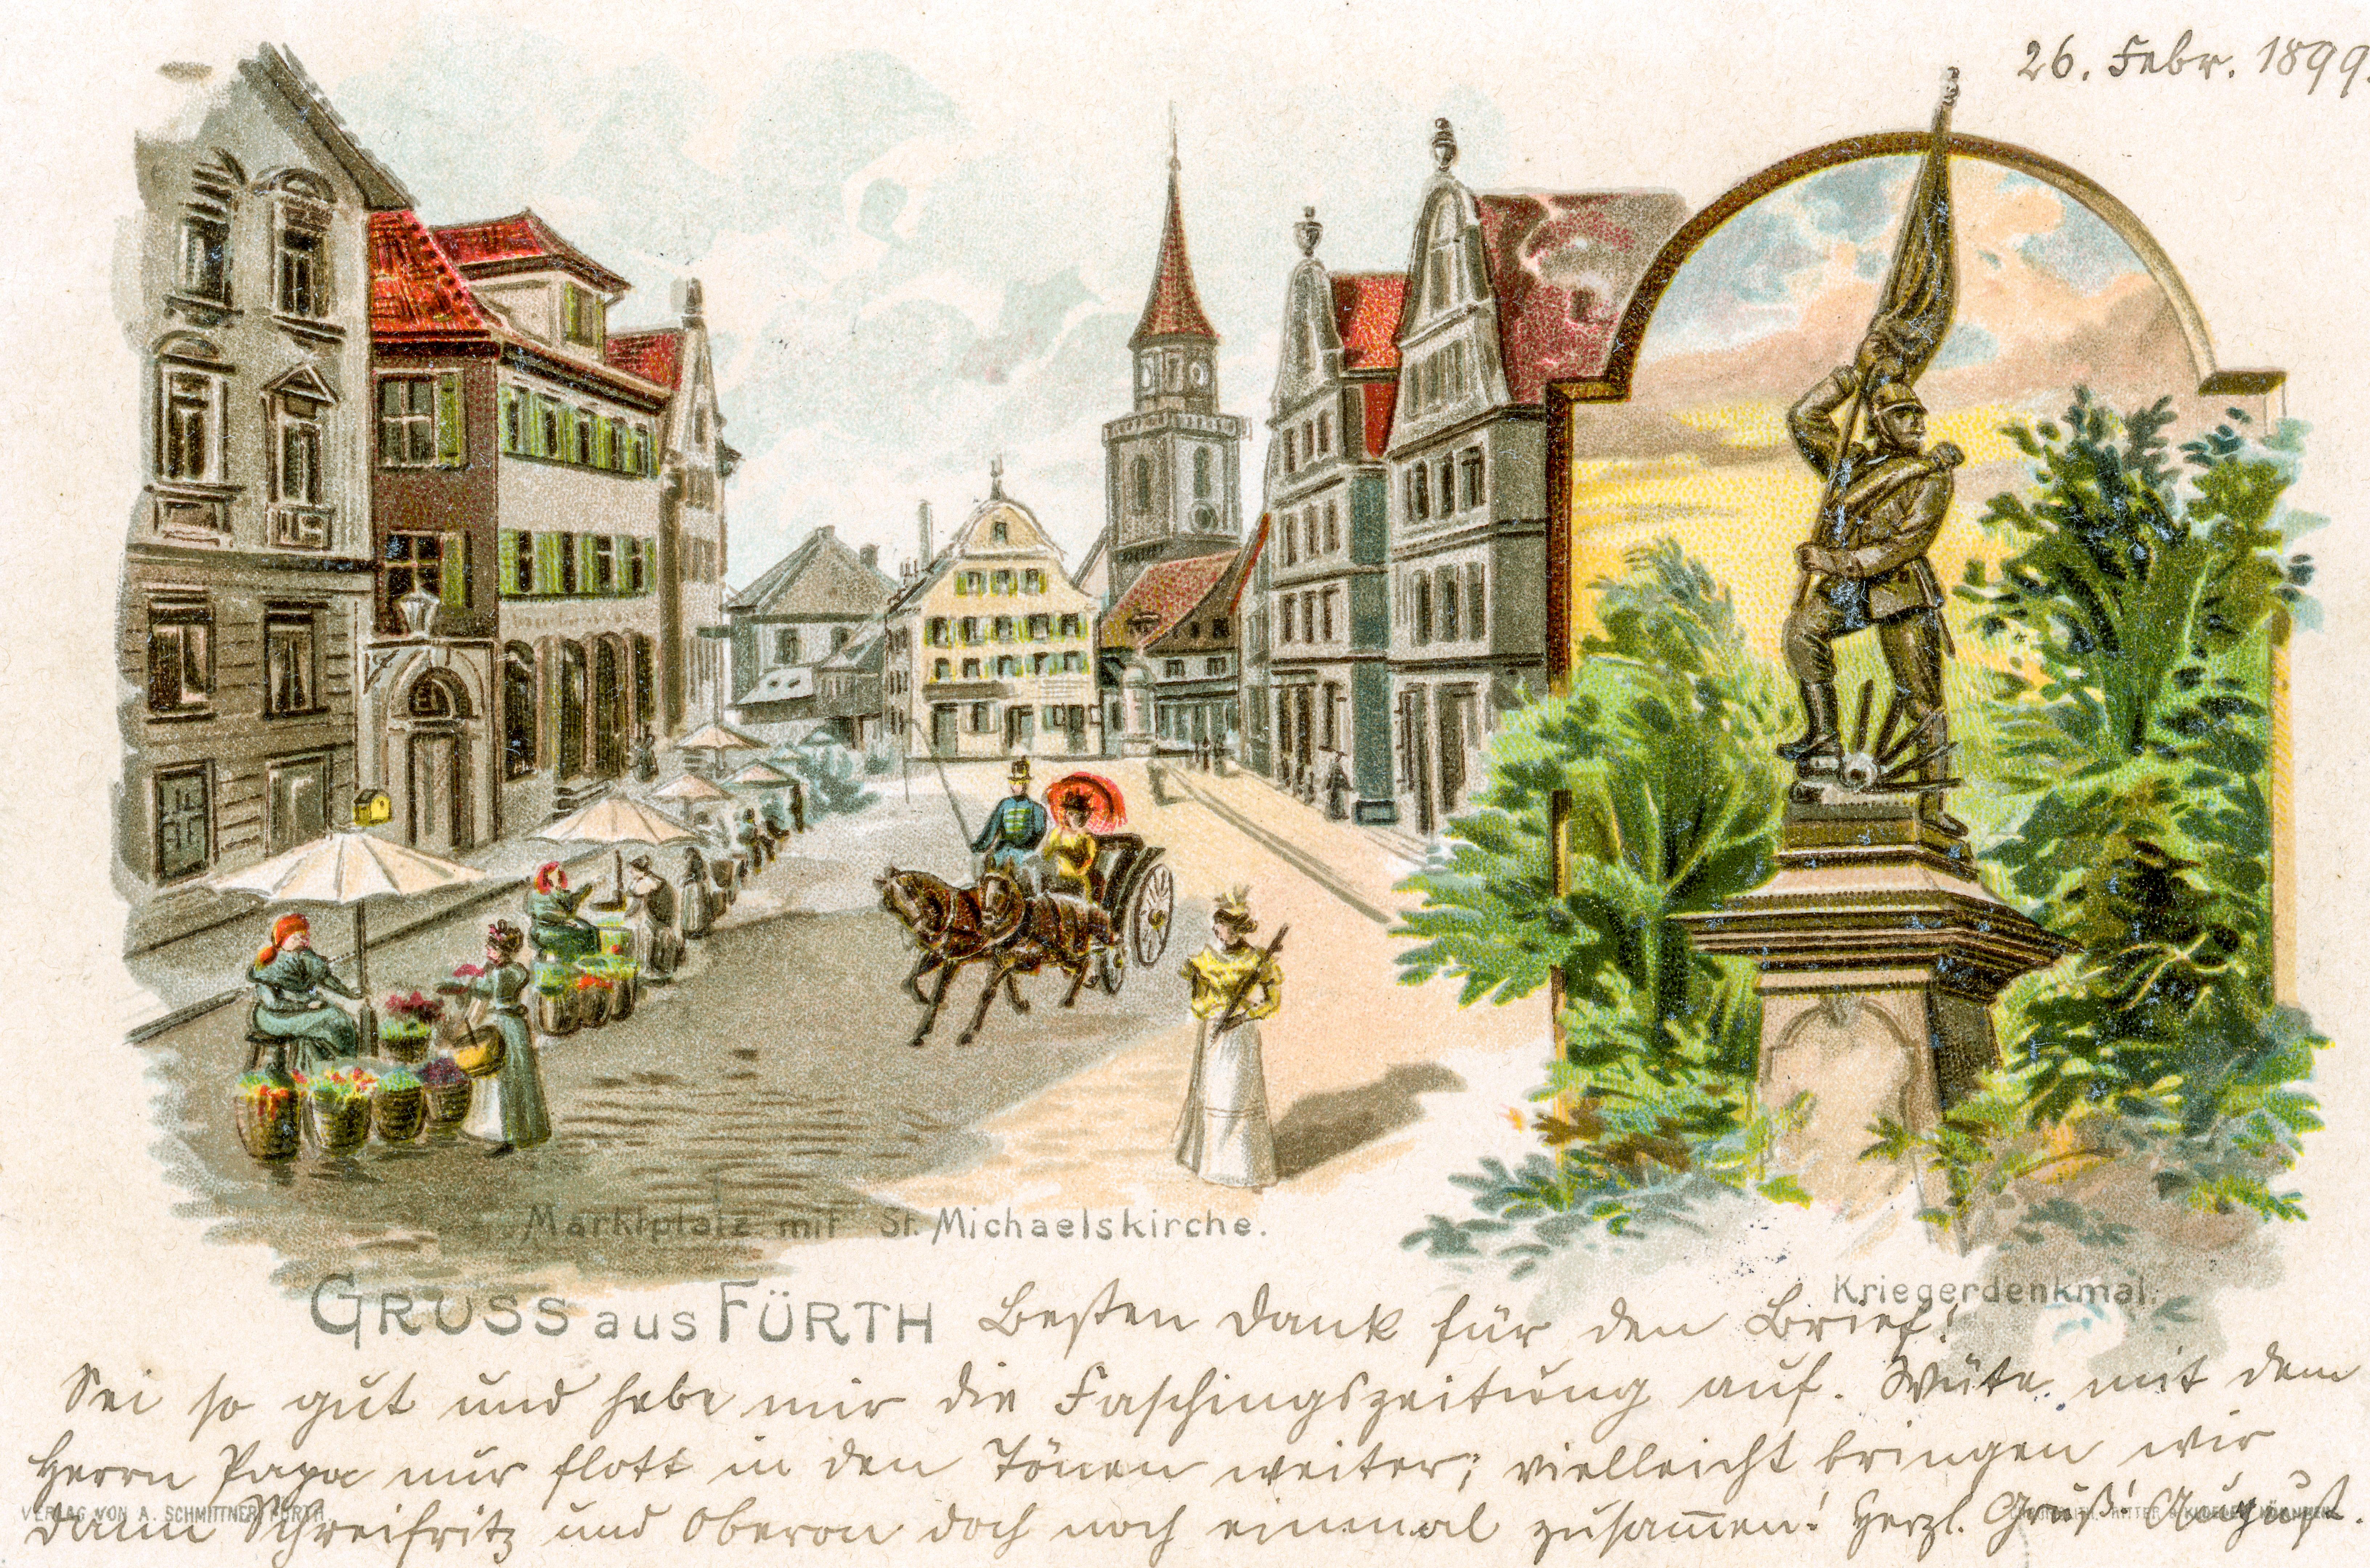 26. Febr. 1899.
Marktplatz mit St. Michaelskirche.
Kriegerdenkmal.
GRUSS aus FÜRTH
Besten Dank für den Brief!
Sei so gut und hebe mir die Faschingszeitung auf. Wüte mit dem
Herrn Papa nur flott in den Tönen weiter; vielleicht bringen wir
dann und Oberon doch noch einmal zusammen! Herzl. Gruß! August.
VERLAG VON A. SCHMITTNER, FÜRTH